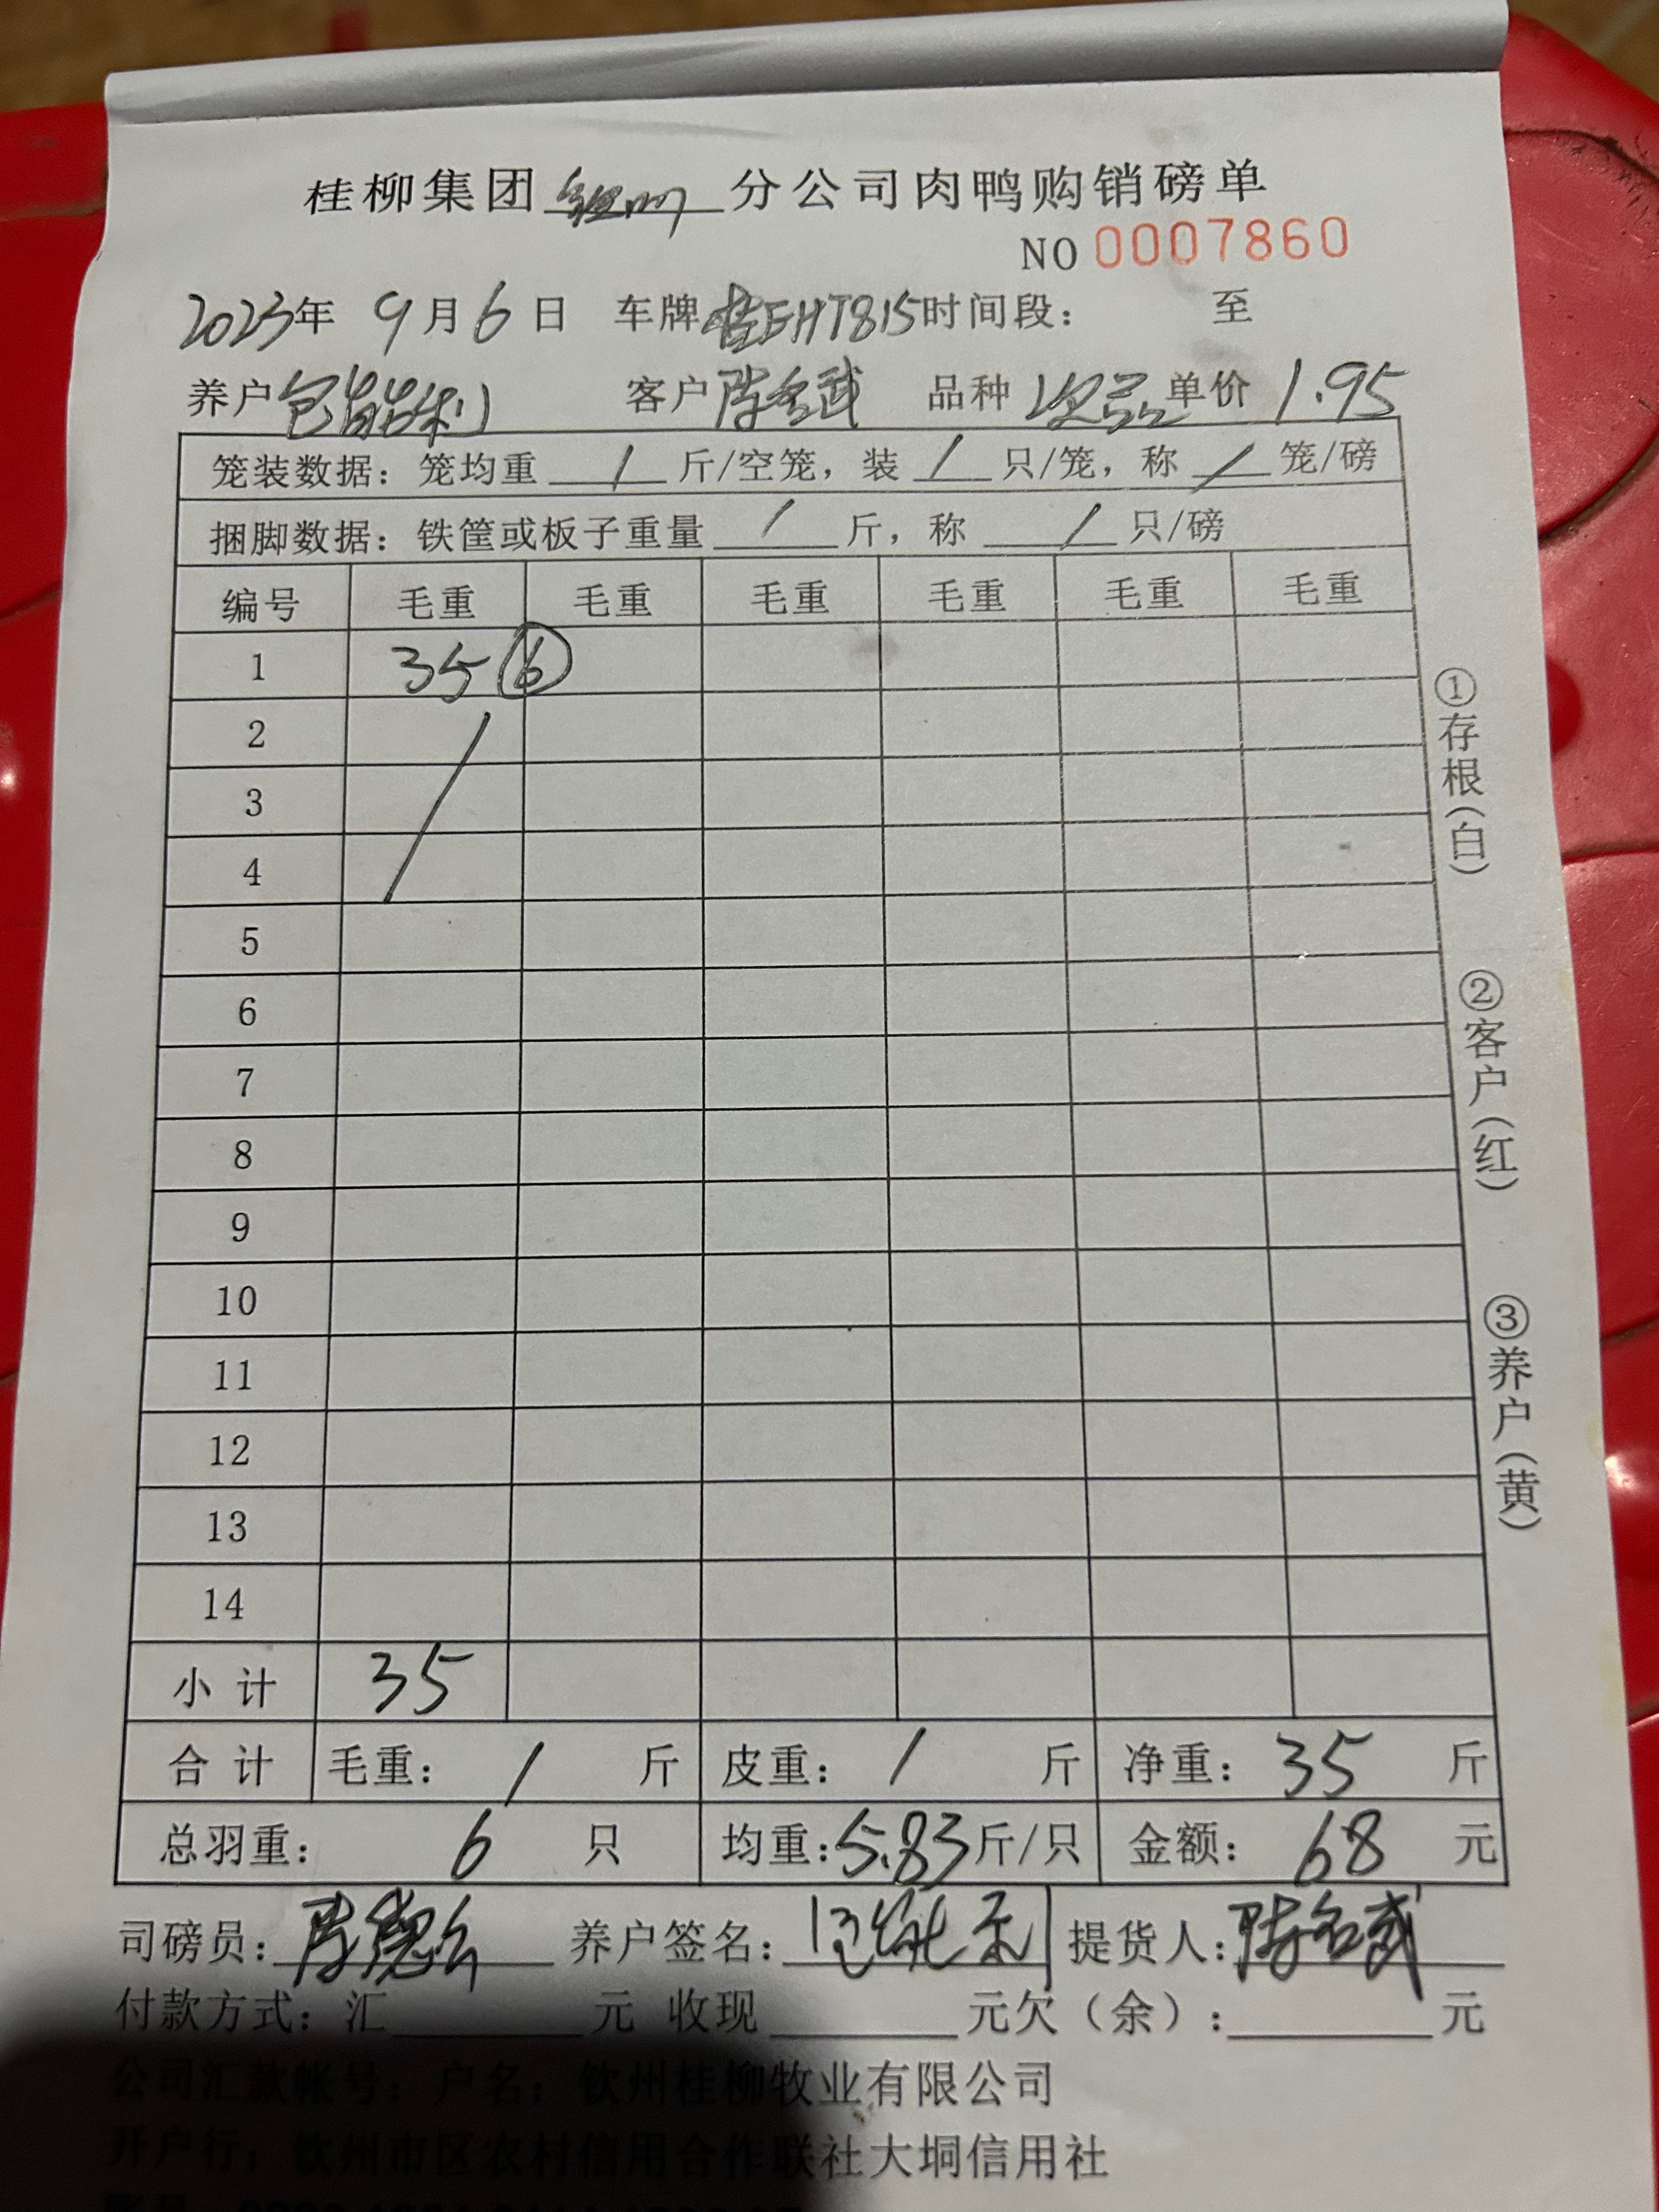 桂柳集团 钦州 分公司肉鸭购销磅单
NO 0007860
2023年 9月6日 车牌桂EHT815时间段： 至
养户包能利 客户陈名武 品种 次品 单价 1.95
笼装数据：笼均重 / 斤/空笼，装 / 只/笼，称 / 笼/磅
捆脚数据：铁筐或板子重量 / 斤，称 / 只/磅
编号 毛重 毛重 毛重 毛重 毛重 毛重
1 35 ⑥
2
3
4
5
6
7
8
9
10
11
12
13
14
小计 35
合计 毛重： / 斤 皮重： / 斤 净重： 35 斤
总羽重： 6 只 均重：5.83斤/只 金额： 68 元
司磅员： 养户签名：包能利 提货人：陈名武
付款方式：汇 元 收现 元欠（余）： 元
公司汇款帐号：户名：钦州桂柳牧业有限公司
开户行：钦州市区农村信用合作联社大垌信用社
①存根（白）
②客户（红）
③养户（黄）